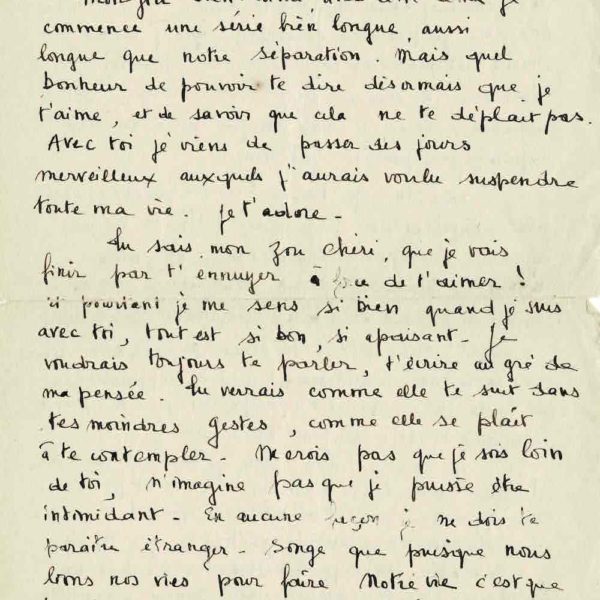 commence une série bien longue, aussi
longue que notre séparation. Mais quel
bonheur de pouvoir te dire désormais que je
t'aime, et de savoir que cela ne te déplait pas.
Avec toi je viens de passer des jours
merveilleux auxquels j'aurais voulu suspendre
toute ma vie. je t'adore -
Tu sais, mon Zou chéri, que je vais
finir par t'ennuyer à force de t'aimer !
pourtant je me sens si bien quand je suis
avec toi, tout est si bon, si apaisant - Je
voudrais toujours te parler, t'écrire au gré de
ma pensée. Tu verrais comme elle te suit dans
tes moindres gestes, comme elle se plaît
à te contempler - pas que je sois loin
de toi, n'imagine pas que je puisse être
intimidant - En aucune façon je ne dois te
paraître étranger - Songe que puisque nous
nos vies pour faire Notre vie c'est que